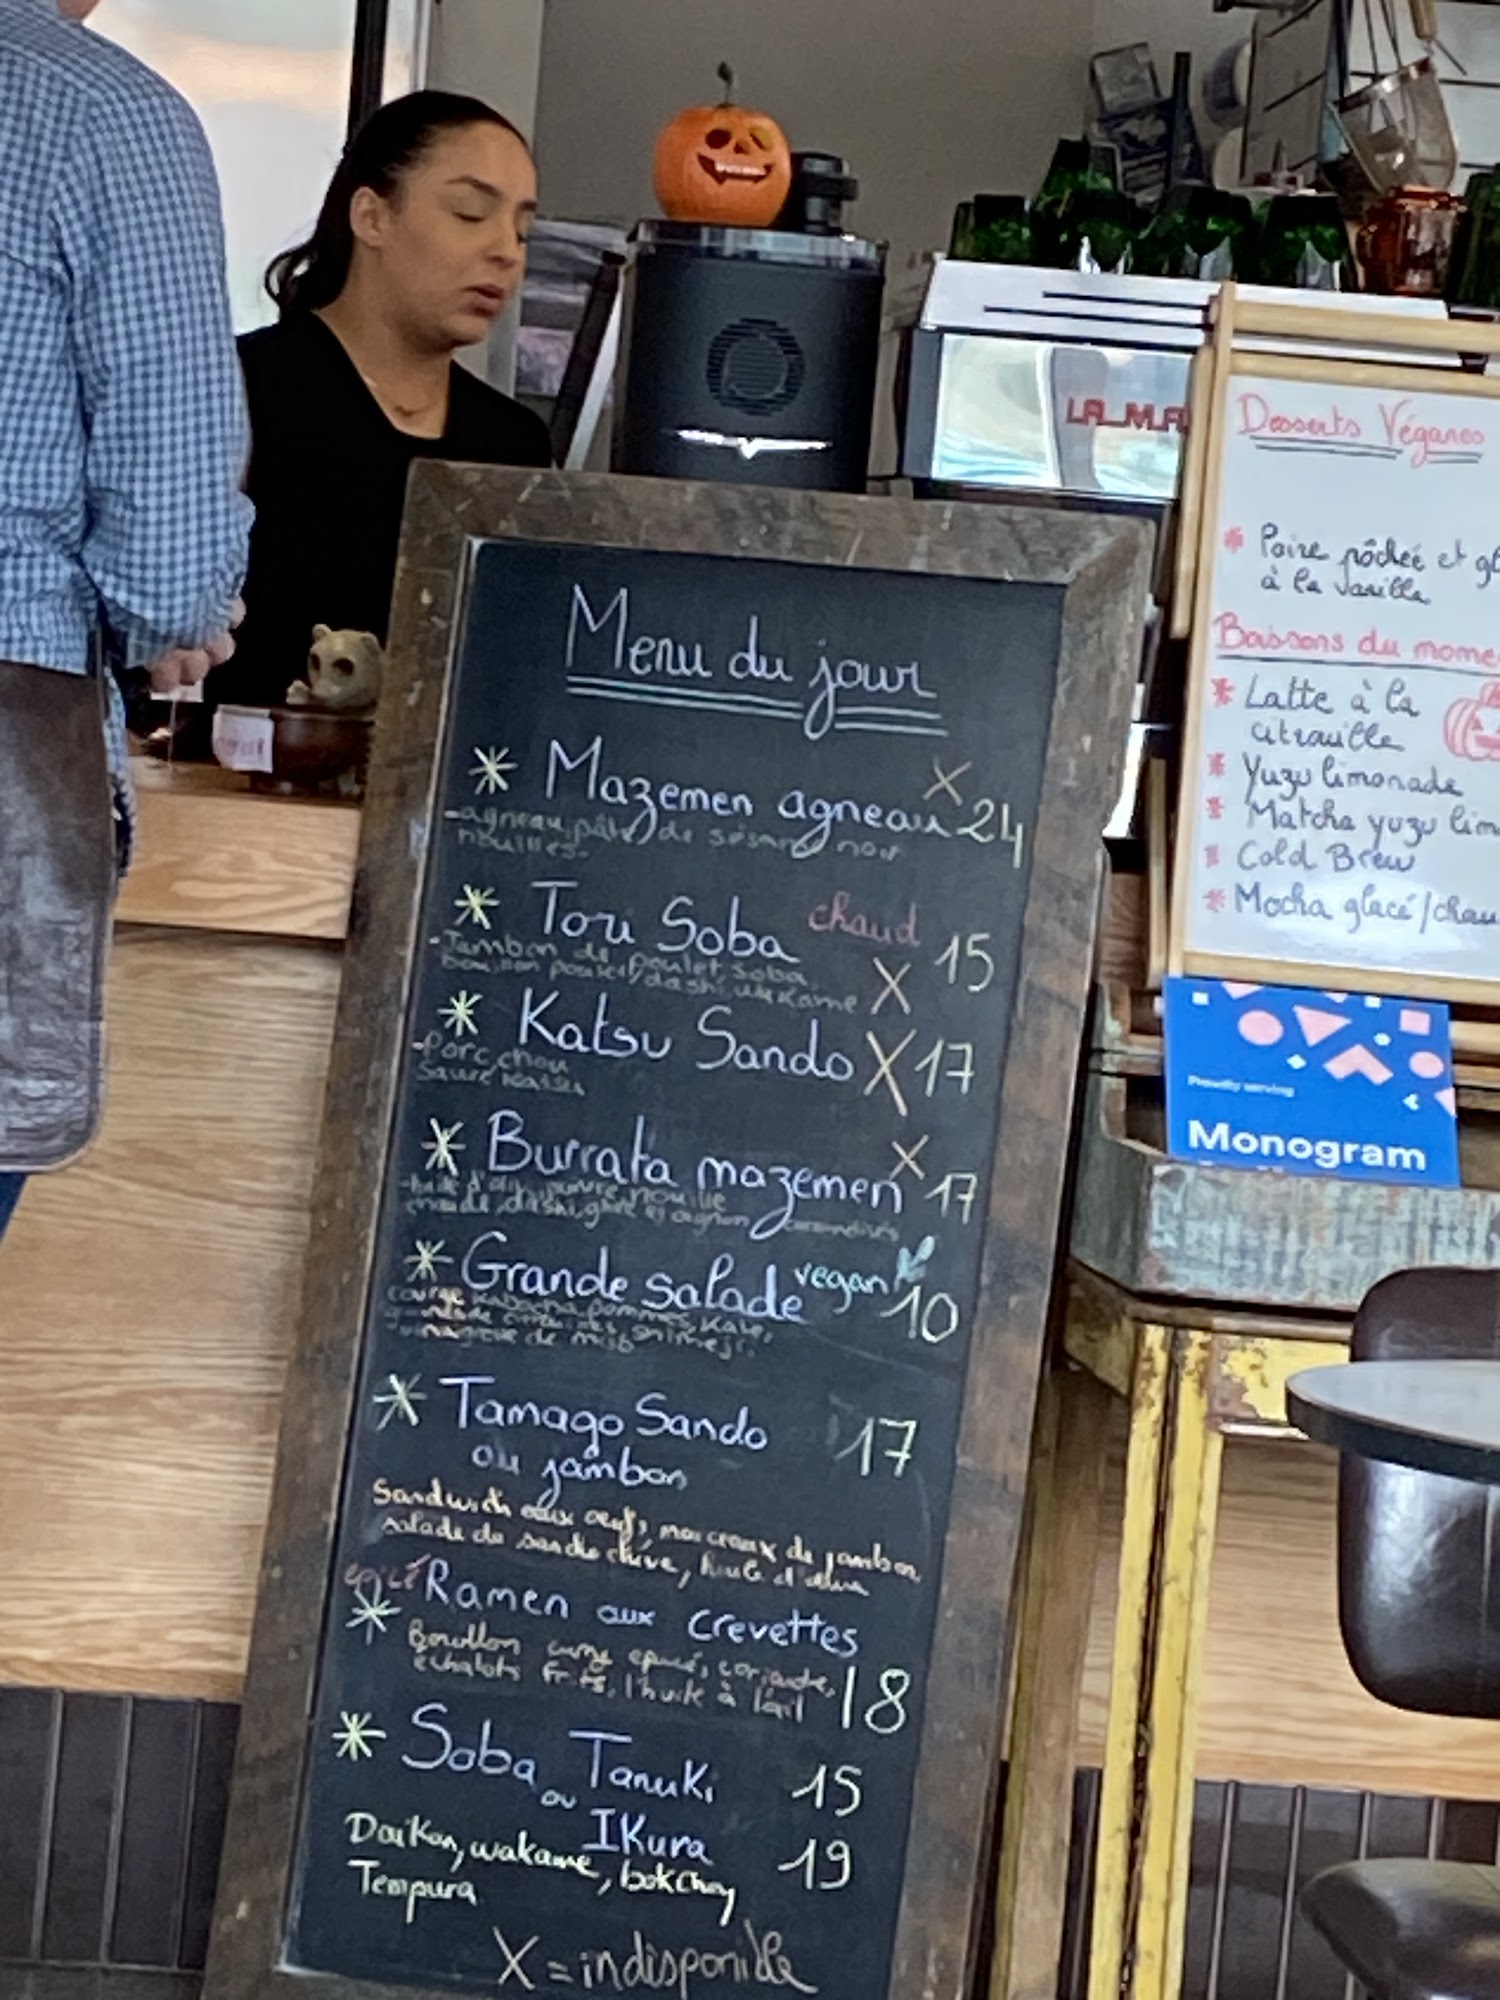 Menu du jour
* Mazemen agneau X 24
-agneau, pâte de sésame noir
nouilles.
* Tori Soba chaud 15
-Jambon de poulet, soba,
bouillon poulet/dashi, wakame X
* Katsu Sando X 17
-Porc, chou
sauce katsu
* Burrata mazemen X 17
nouille
chaude, dashi, oignon
* Grande salade vegan 10
courge Kabocha, pommes, Kale,
shimeji,
vinaigrette de miso
* Tamago Sando 17
ou jambon
Sandwich aux oeufs, morceaux de jambon,
salade de
epicé Ramen aux crevettes
* Bouillon curry epicé, coriandre,
échalots frits, l'huile à l'ail 18
* Soba Tanuki 15
ou IKura 19
Daikon, wakame, bokchoy
Tempura
X = indisponible
LA MA
Desserts Véganes
* Poire pôchée et gl
à la vanille
Boissons du mome
* Latte à la
citrouille
* Yuzu limonade
* Matcha yuzu lim
* Cold Brew
* Mocha glacé/chau
Proudly serving
Monogram